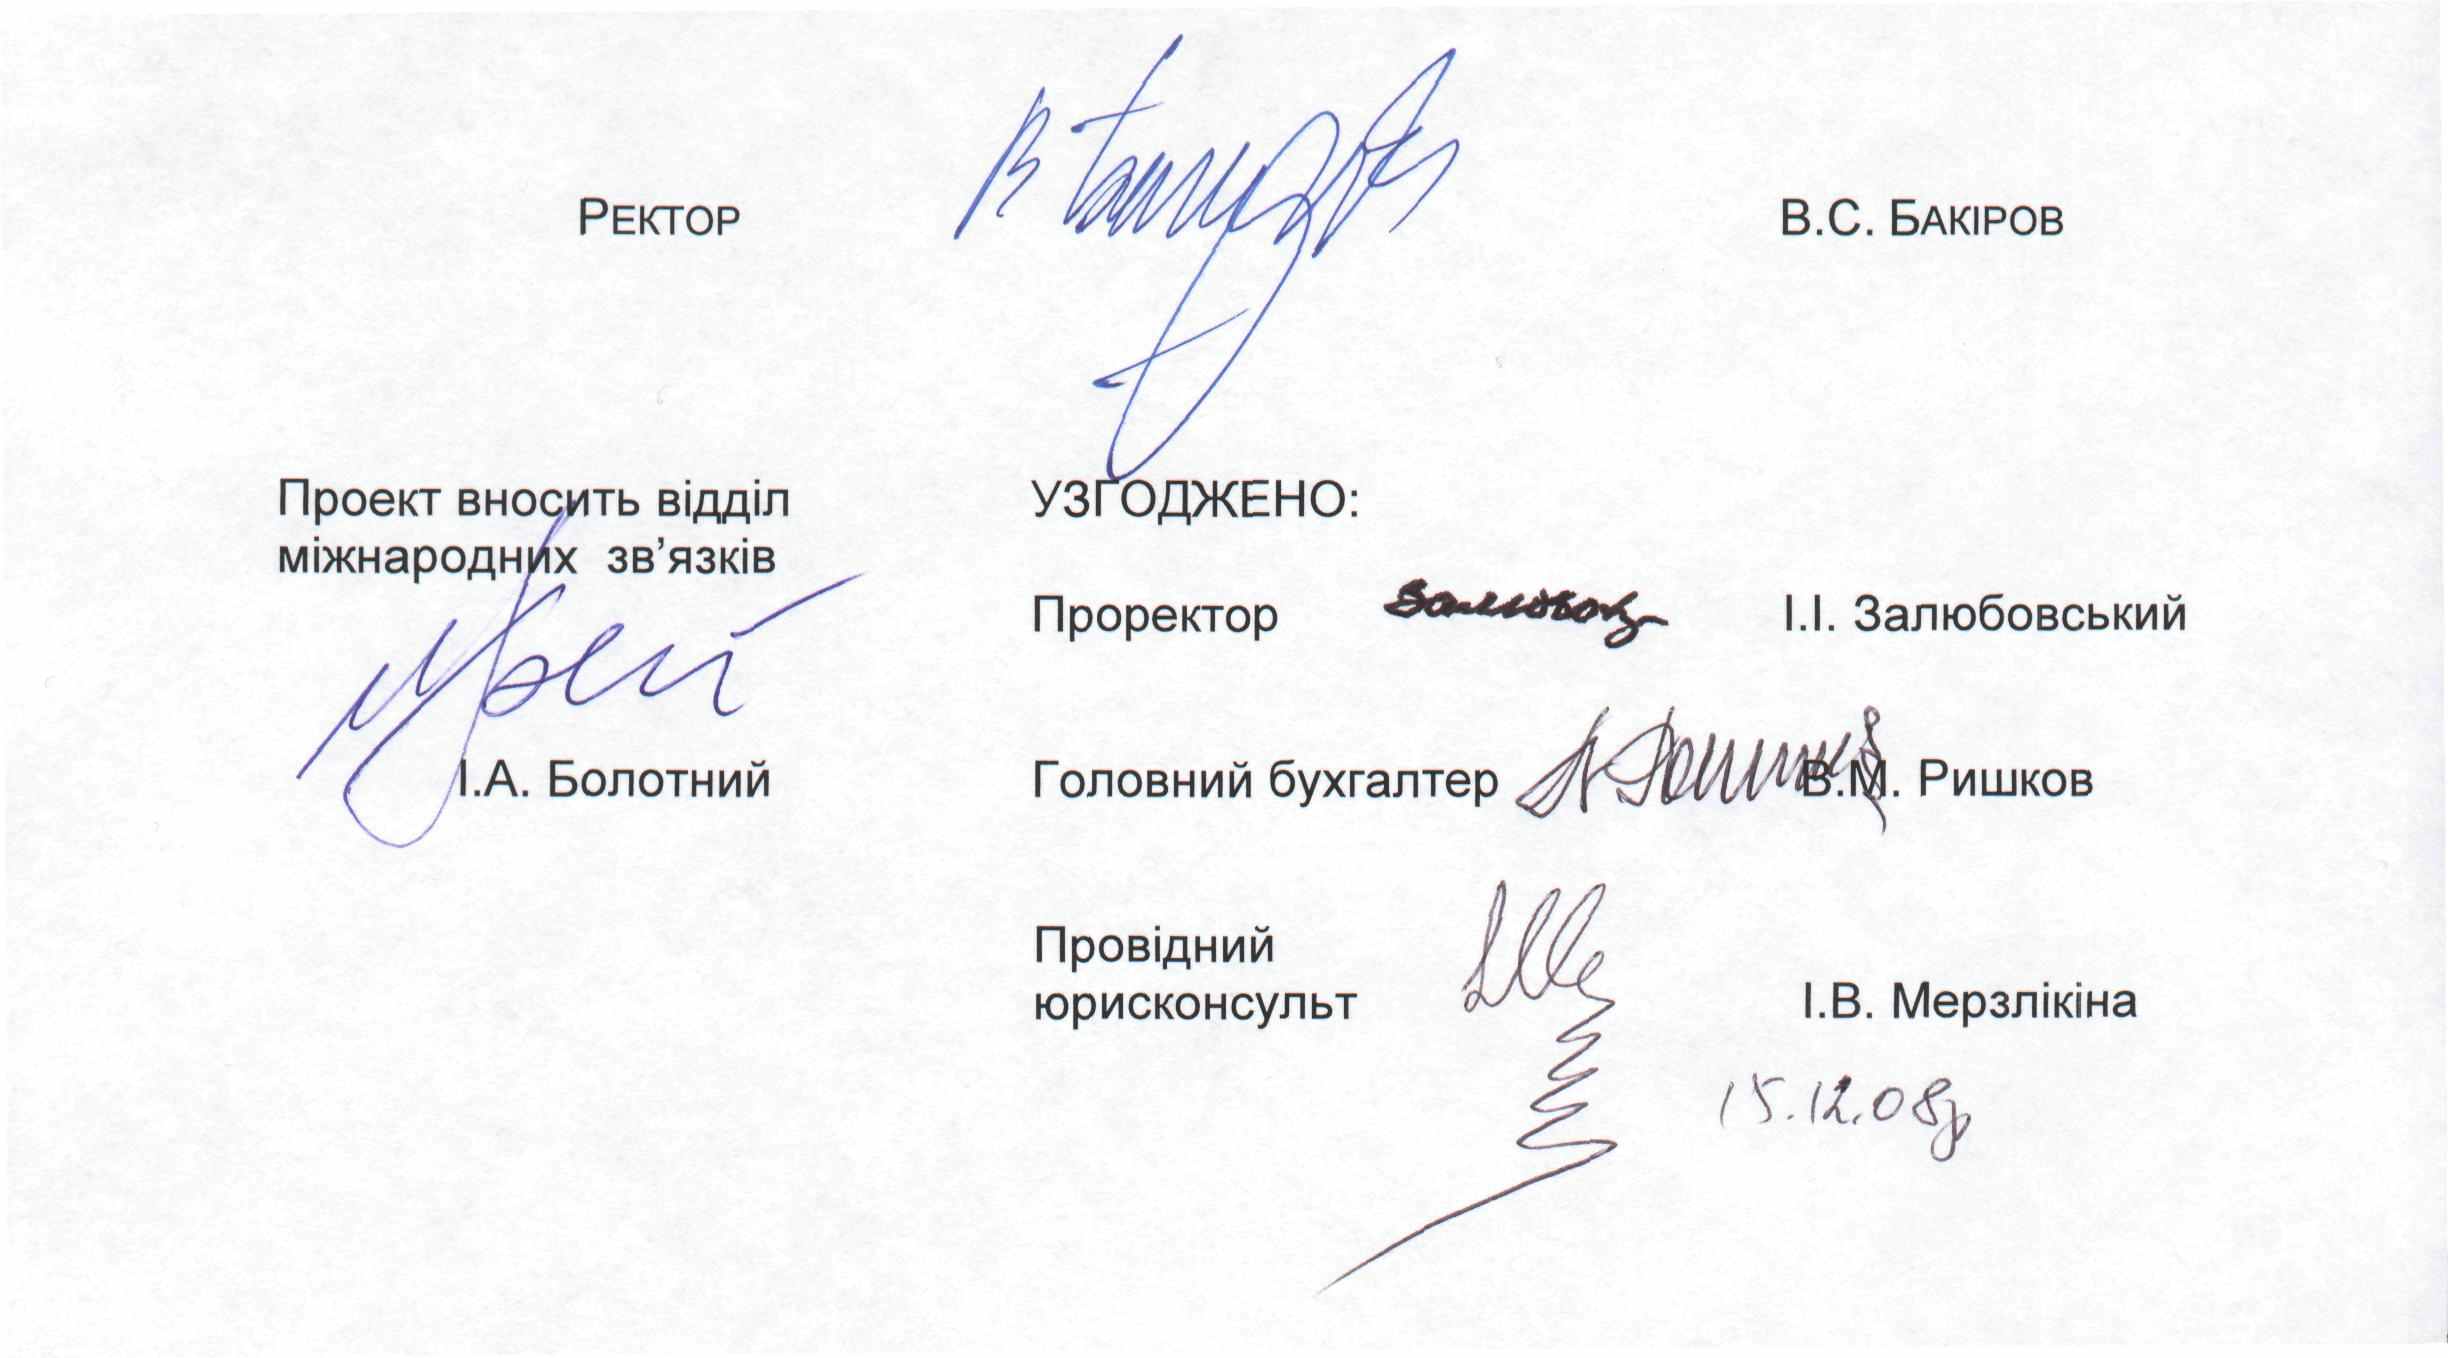 РЕКТОР В.С. БАКІРОВ
Проект вносить відділ
міжнародних зв’язків
І.А. Болотний
УЗГОДЖЕНО:
Проректор І.І. Залюбовський
Головний бухгалтер В.М. Ришков
Провідний
юрисконсульт І.В. Мерзлікіна
15.12.08р